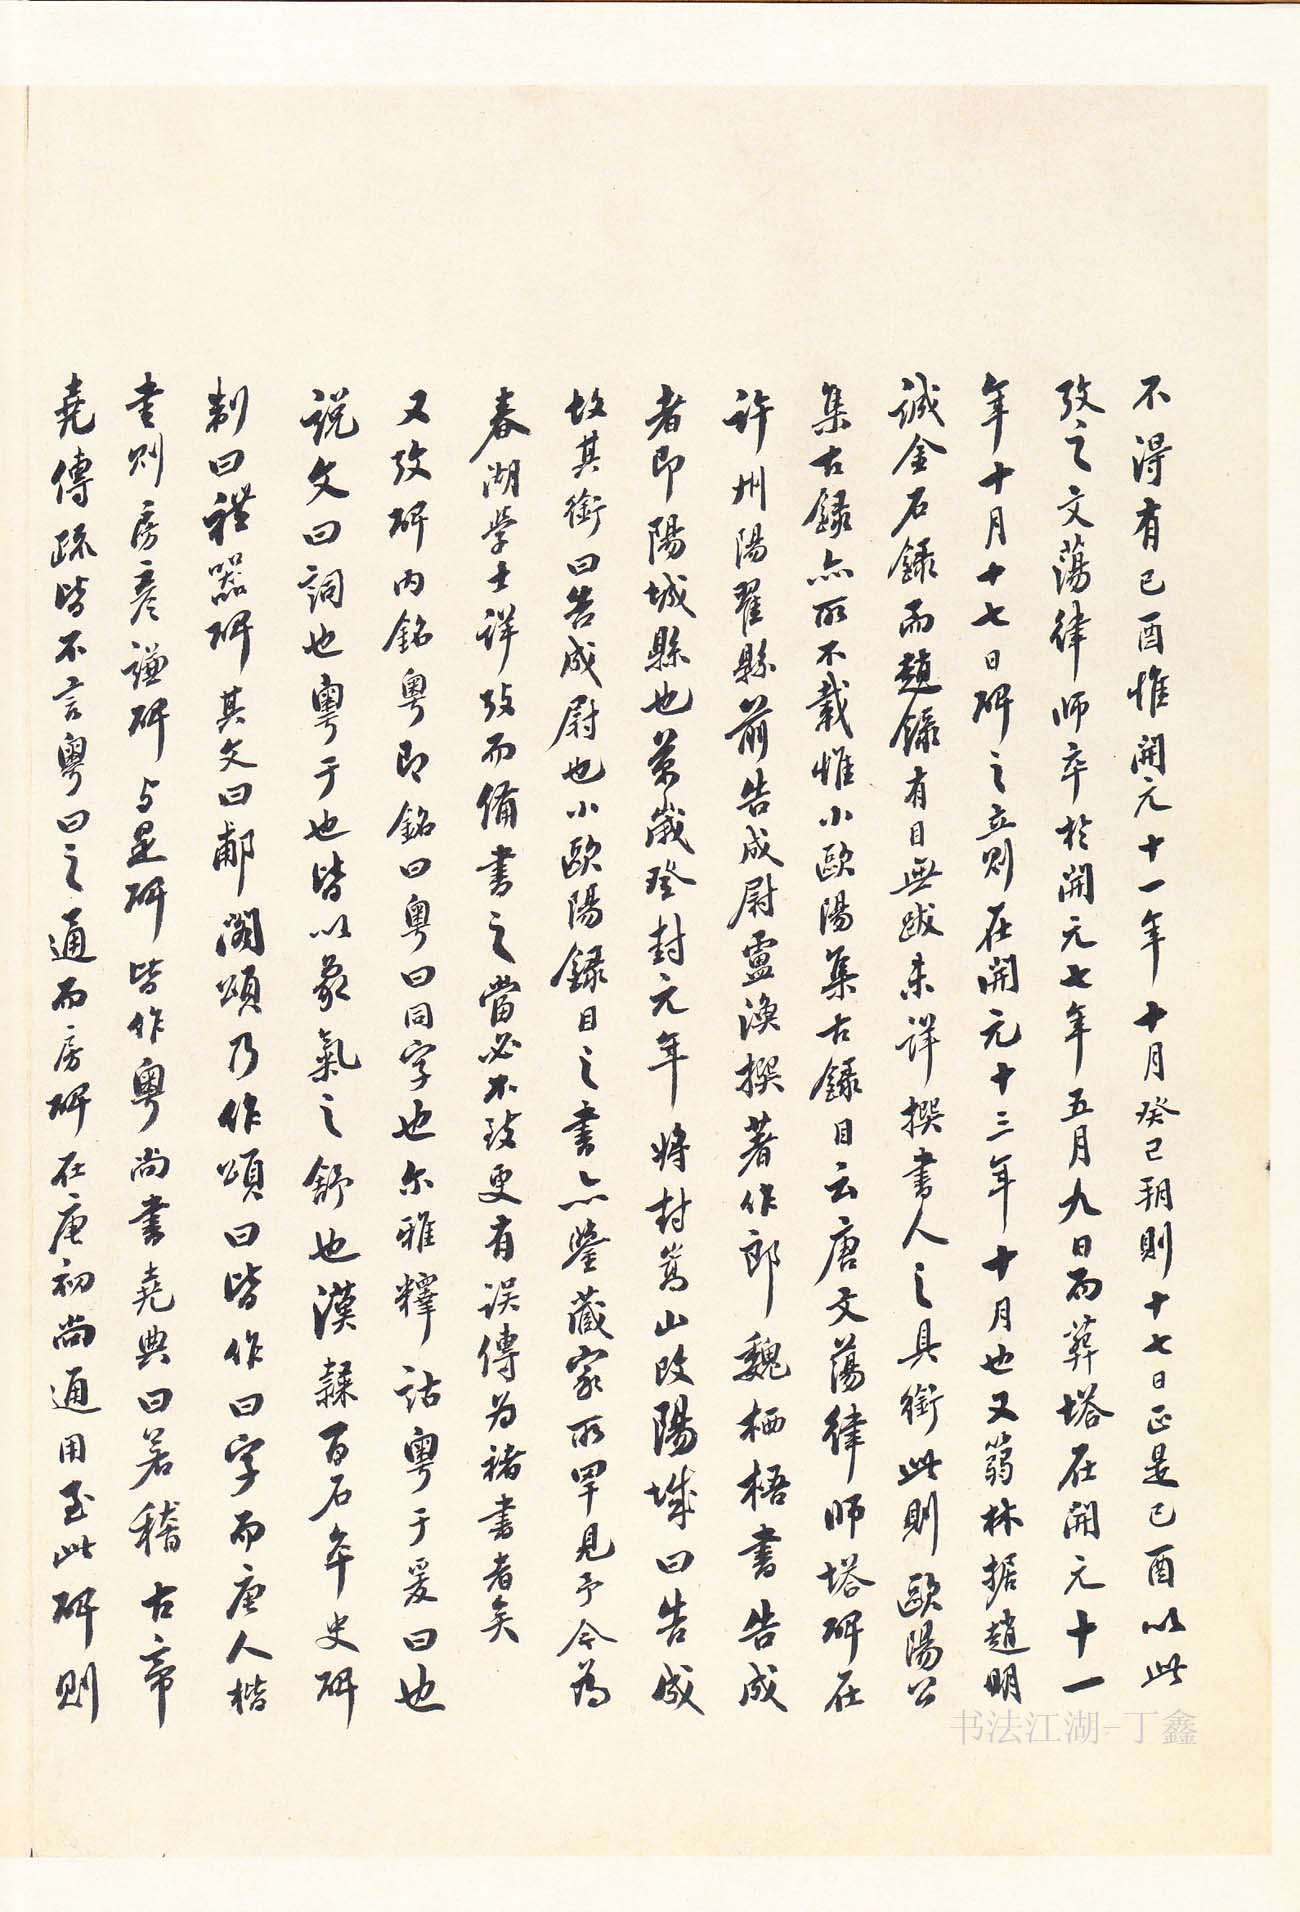 不得有己酉惟開元十一年十月癸巳朔則十七日正是己酉以此
攷之文蕩律師卒於開元七年五月九日而葬塔在開元十一
年十月十七日碑之立則在開元十三年十月也又篛林据趙明
誠金石錄而趙錄有目無跋未詳撰書人之具銜此則歐陽公
集古錄亦所不載惟小歐陽集古錄目云唐文蕩律師塔碑在
許州陽翟縣前告成尉盧渙撰著作郎魏栖梧書告成
者即陽城縣也萬歲登封元年將封嵩山改陽城曰告成
故其銜曰告成尉也小歐陽錄目之書亦鑒藏家所罕見予今為
春湖學士詳攷而備書之當必不致更有误傳为褚書者矣
又攷碑内銘粵即銘曰粵曰同字也尔雅釋詁粵于爰曰也
説文曰詞也粵于也皆以象氣之舒也漢隸百石卒史碑
制曰禮器碑其文曰郙閣頌乃作頌曰皆作曰字而唐人楷
書则房彦謙碑与是碑皆作粵尚書堯典曰若稽古帝
堯傳疏皆不言粵曰之通而房碑在唐初尚通用至此碑則
书法江湖-丁鑫